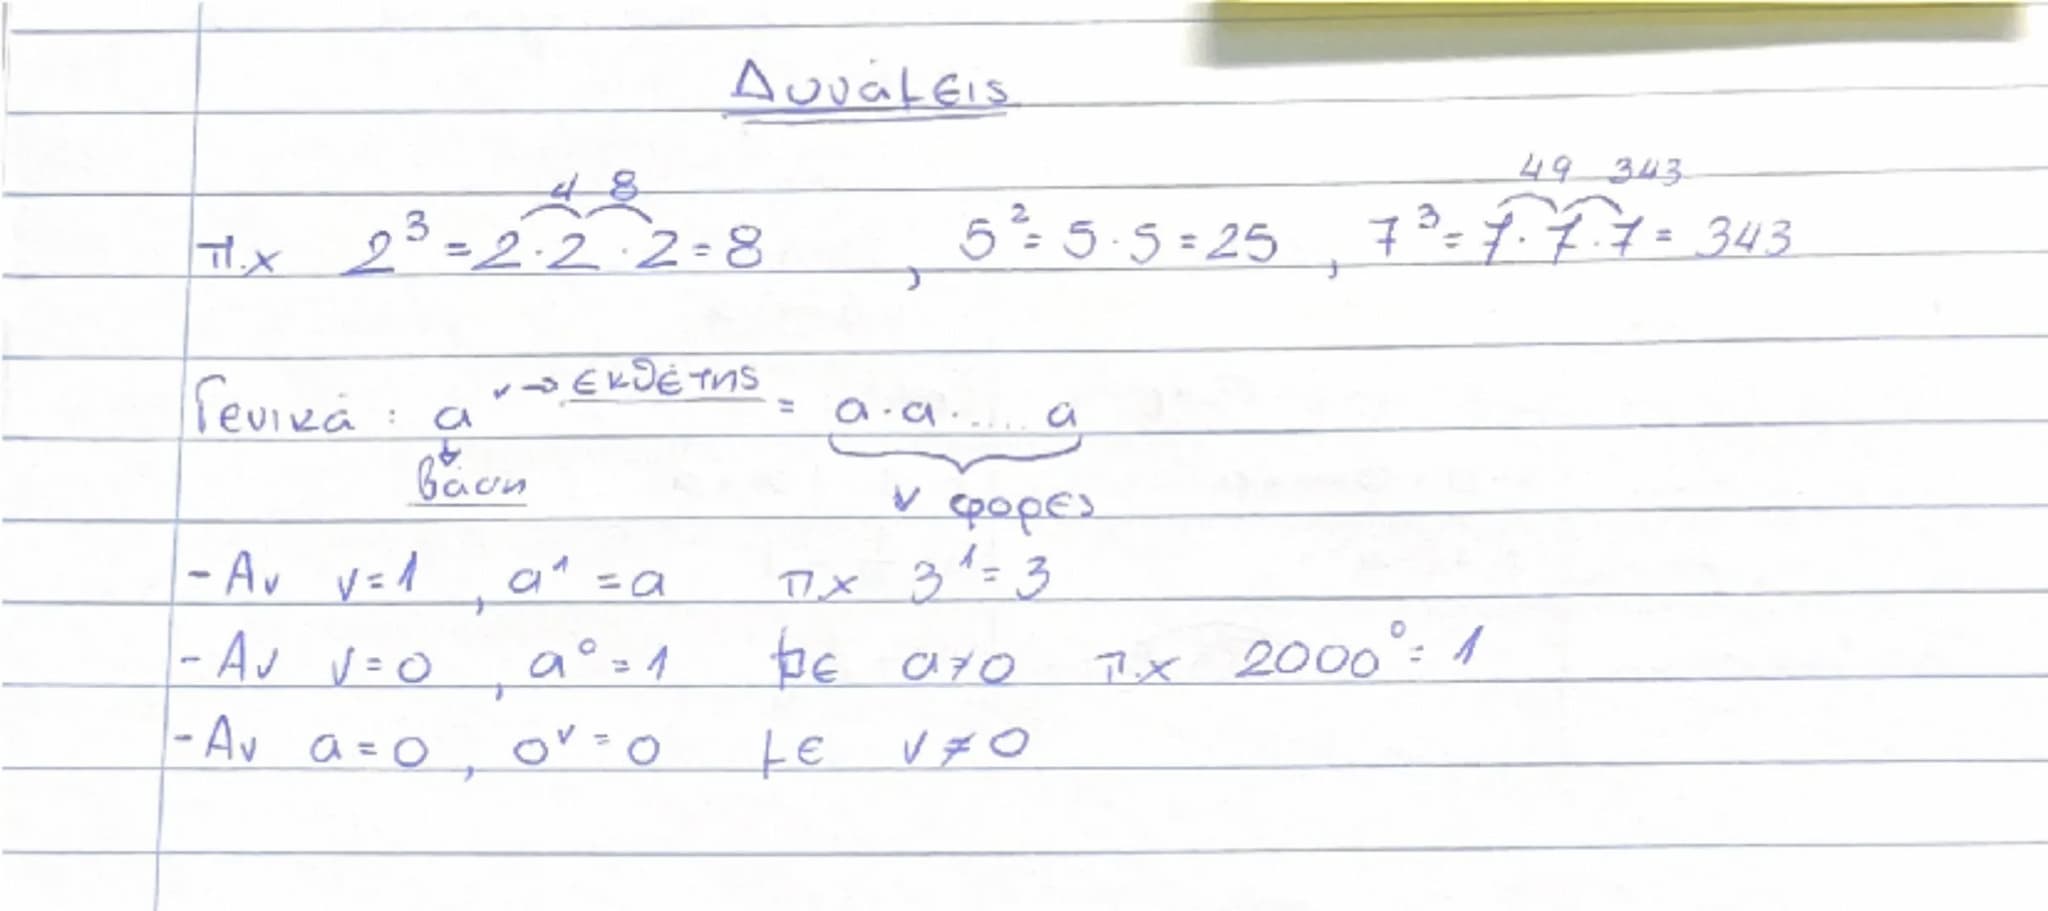 Δυνάμεις
4 8 49 343
π.χ 2³ = 2·2·2 = 8 , 5² = 5·5 = 25 , 7³ = 7·7·7 = 343
Γενικά : α ν → εκθέτης = α·α·.... α
βάση ν φορές
- Αν ν=1 , α¹ = α πχ 3¹ = 3
- Αν ν=0 , α⁰ = 1 με α≠0 π.χ 2000⁰ = 1
- Αν α=0 , 0ᵛ = 0 με ν≠0